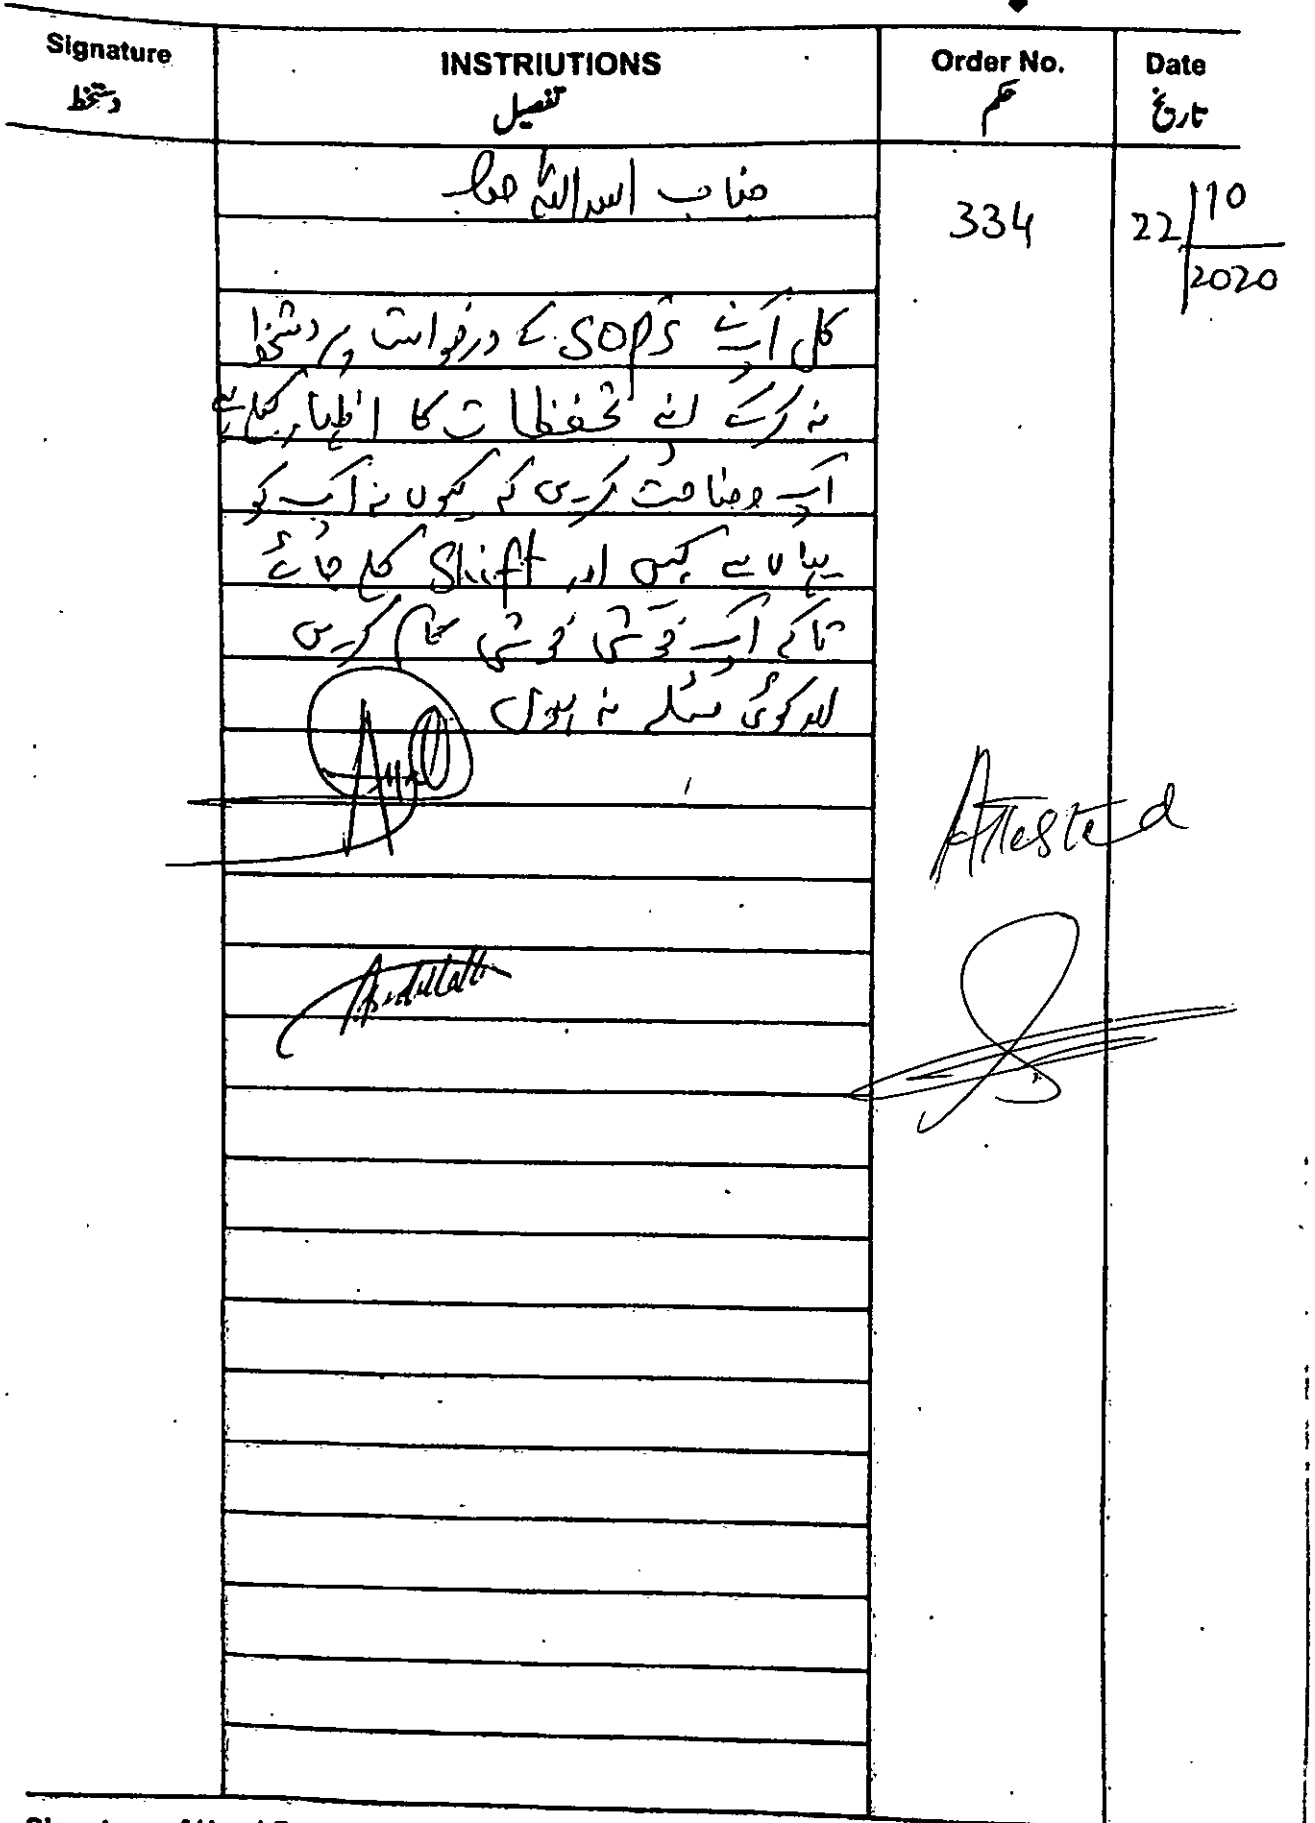 Signature
INSTRIUTIONS
Order No.
Date
دستخط
تفصیل
حکم
تاریخ
جناب اسداللہ صاحب
334
22/10/2020
کل آپ نے SOPS کے درخواست پر دستخط
نہ کرکے اپنے تحفظات کا اظہار کیا ہے
آپ وضاحت کریں کہ کیوں نہ آپ کو
یہاں سے کہیں اور Shift کیا جائے
تاکہ آپ خوشی خوشی کام کریں
اور کوئی مسئلہ نہ ہوں
Attested